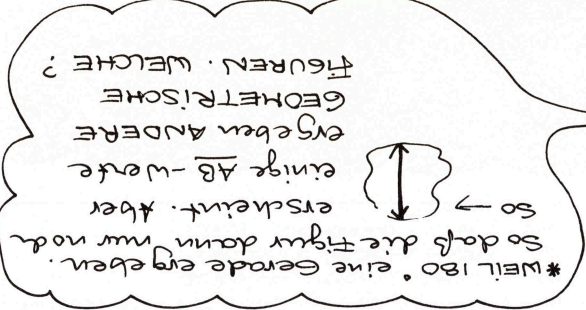 * WEIL 180° eine Gerade ergeben.
So daß die Figur dann nur noch
so → erscheint. Aber
einige AB-werte
ergeben ANDERE
GEOMETRISCHE
FIGUREN. WELCHE ?